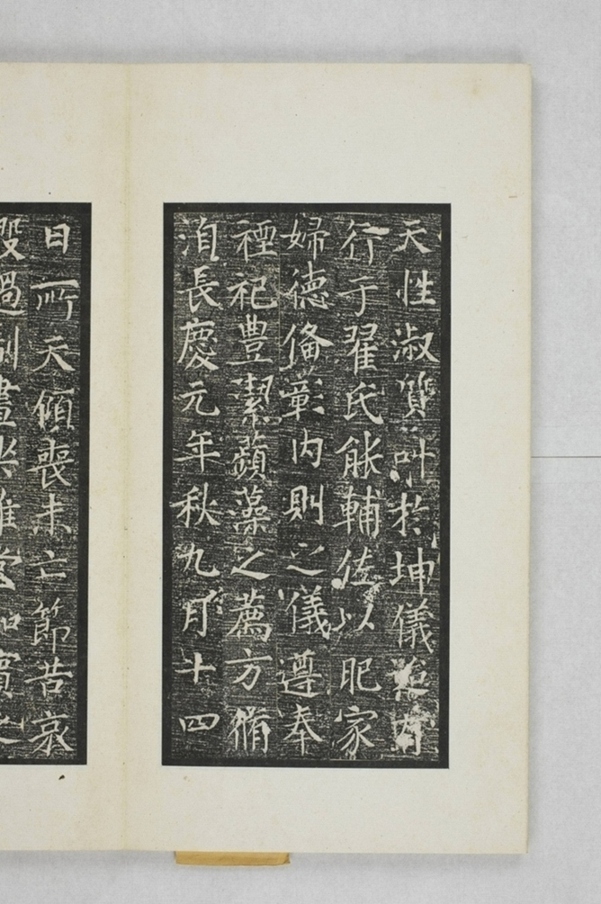 天性淑質叶於坤儀
行于翟氏能輔佐以肥家
婦德俻彰内則之儀遵奉
禋祀豐潔蘋藻之薦方脩
洎長慶元年秋九月十四
日所天傾喪未亡節苦哀
毀過制晝